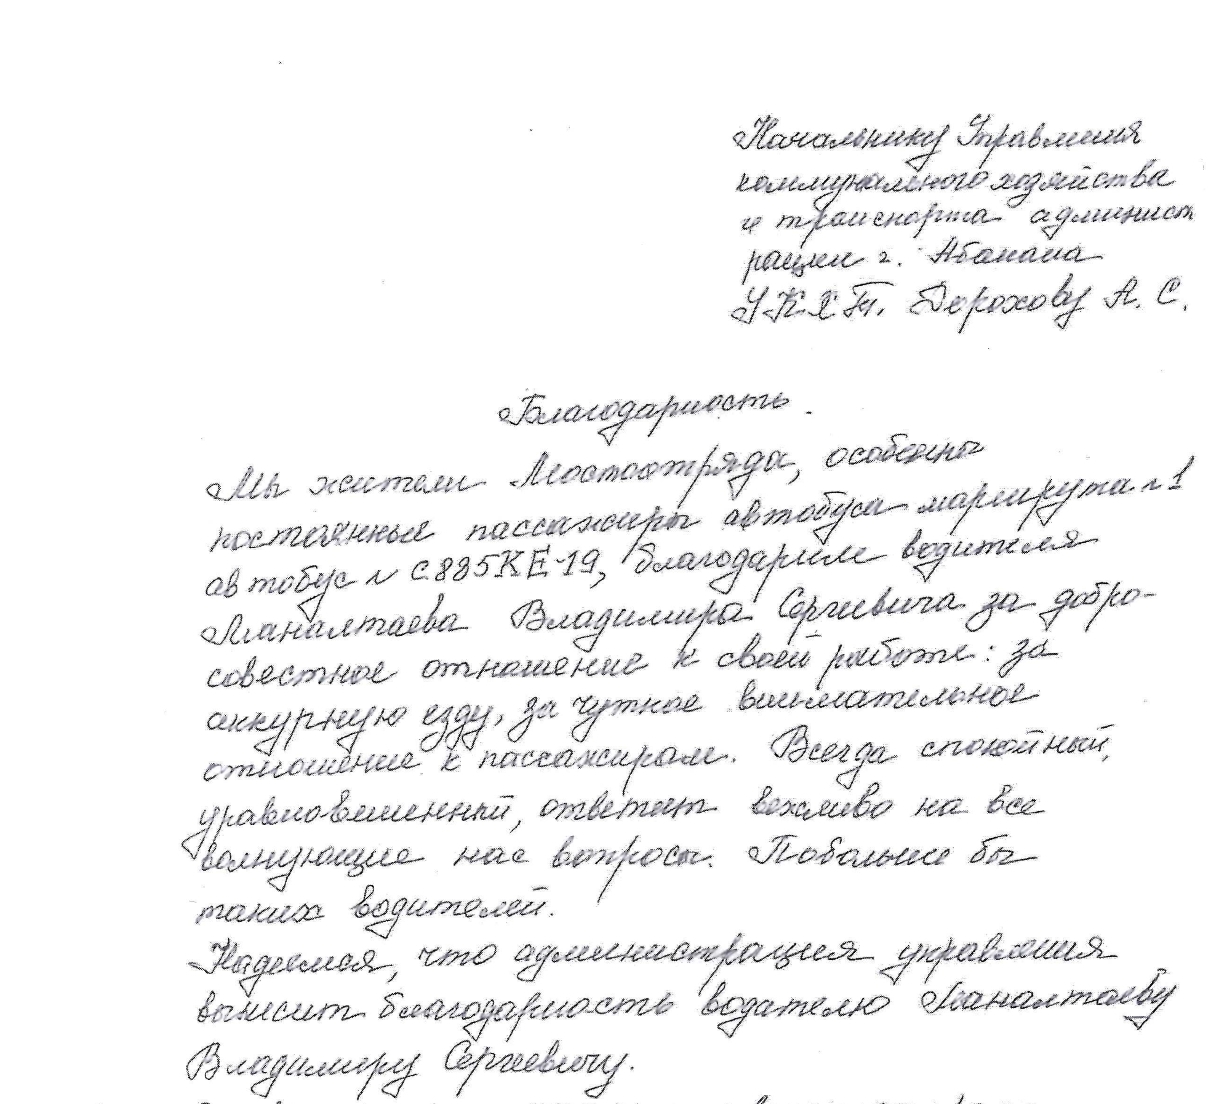 Начальнику Управления
коммунального хозяйства
и транспорта админист
рации г. Абакана
УКХТ. Дорохову А. С.
Благодарность.
Мы жители Мостоотряда, особенно
постоянные пассажиры автобуса маршрута №1
автобус № С885КЕ-19, благодарим водителя
Владимира Сергеевича за добро-
совестное отношение к своей работе: за
аккурную езду, за чуткое внимательное
отношение к пассажирам. Всегда спокойный,
уравновешенный, ответит вежливо на все
волнующие нас вопросы. Побольше бы
таких водителей.
Надеемся, что администрация управления
вынесит благодарность водателю
Владимиру Сергеевичу.